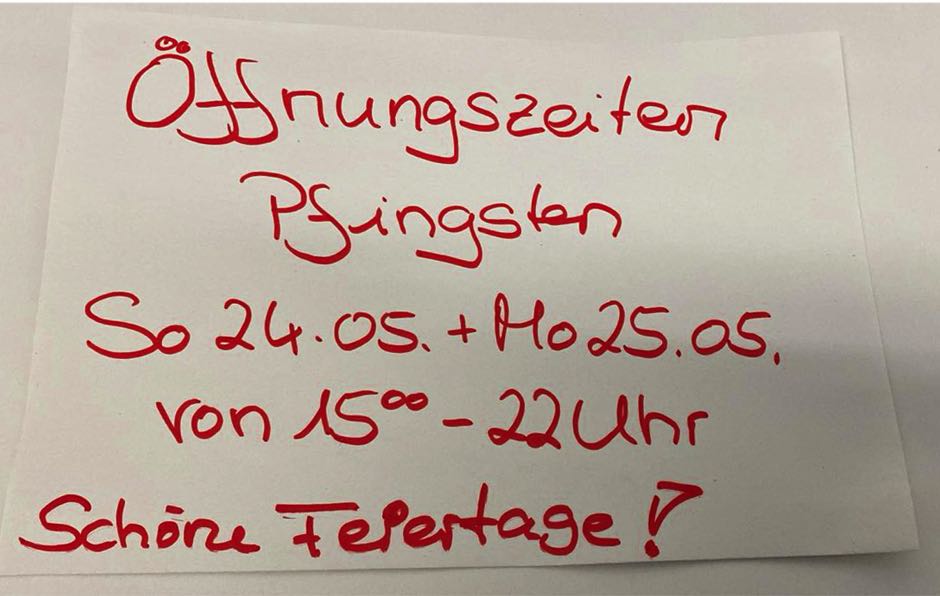 Öffnungszeiten
Pfingsten
So 24.05. + Mo 25.05.
von 15⁰⁰ - 22 Uhr
Schöne Feiertage!